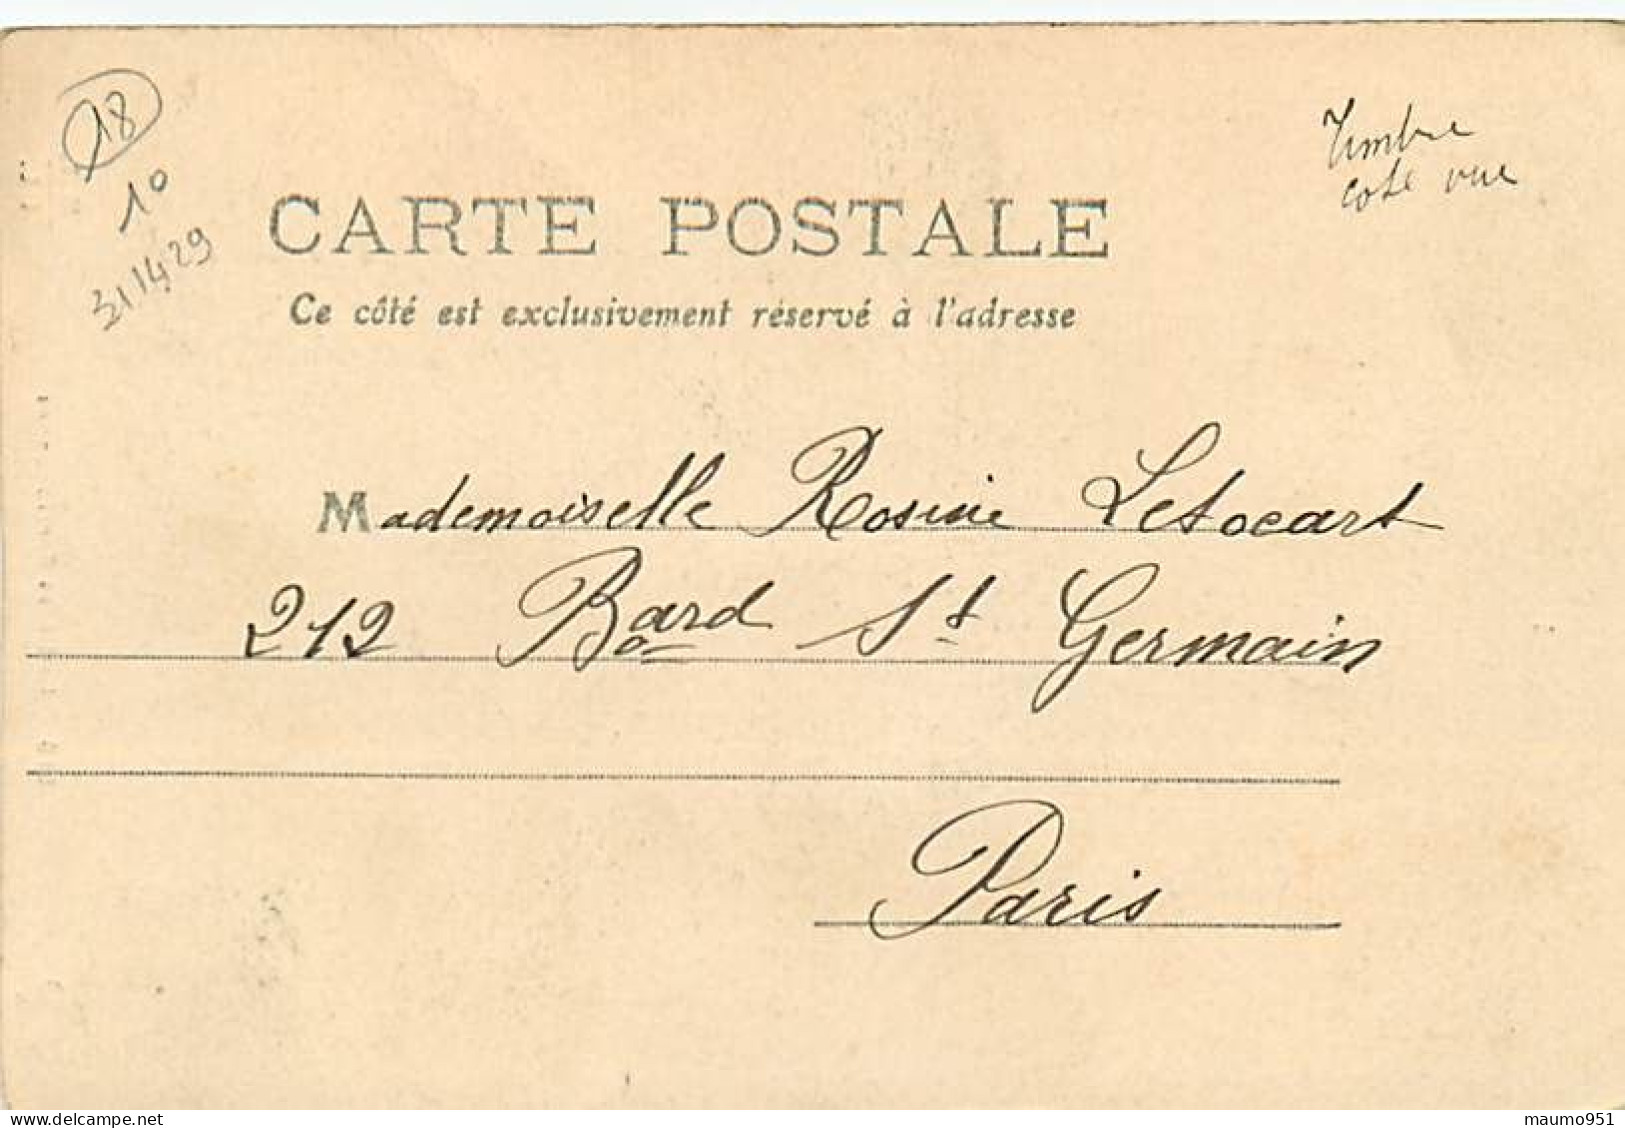 18
10
311429
Timbre
coté vue
CARTE POSTALE
Ce côté est exclusivement réservé à l'adresse
Mademoiselle Rosine Letocart
212 Board St Germain
Paris
delcampe.net
maumo951